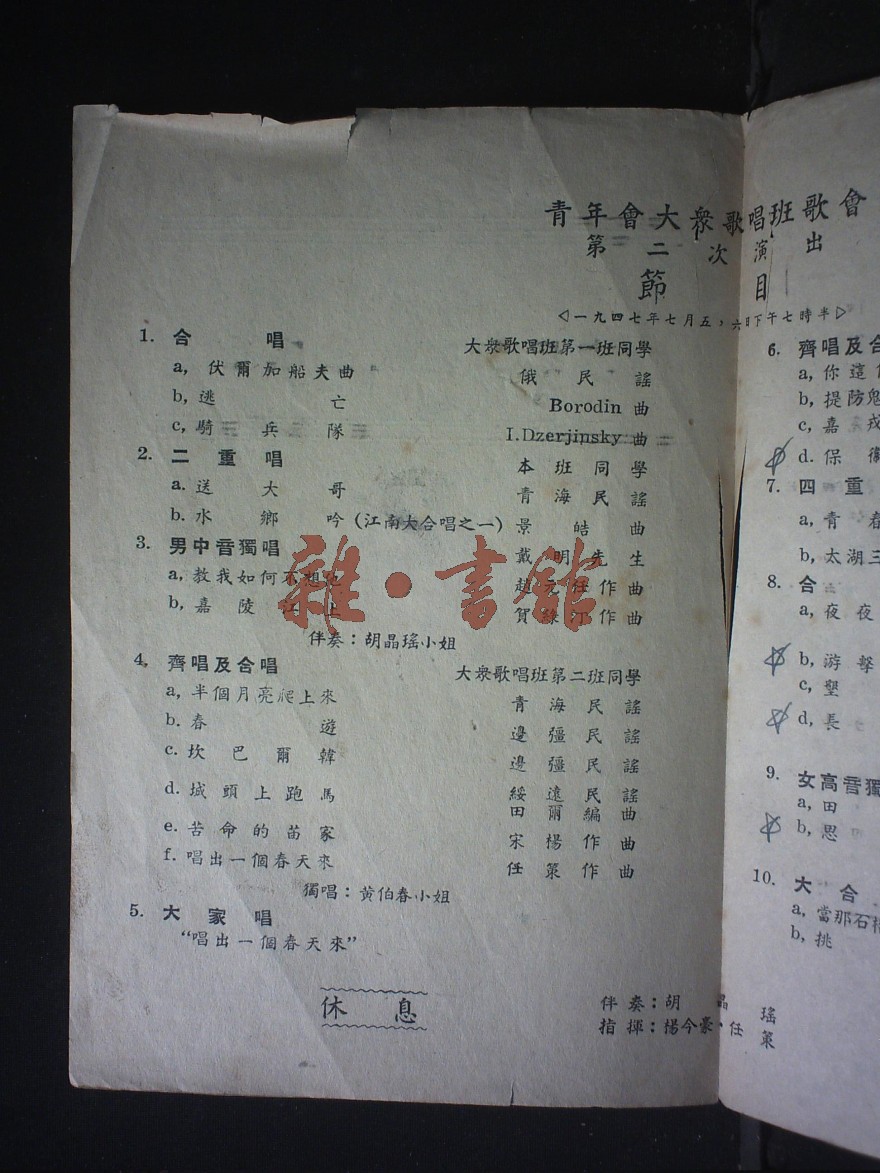 青年會大衆歌唱班歌會
第二次演出
節目
◁一九四七年七月五，六日下午七時半▷
1. 合唱 大衆歌唱班第一班同學
a, 伏爾加船夫曲 俄民謠
b, 逃亡 Borodin 曲
c, 騎兵隊 I.Dzerjinsky 曲
2. 二重唱 本班同學
a. 送大哥 青海民謠
b. 水鄉吟 (江南大合唱之一) 景皓曲
3. 男中音獨唱 戴明先生
a, 教我如何不想她 趙元任作曲
b, 嘉陵江上 賀綠汀作曲
伴奏：胡晶瑤小姐
4, 齊唱及合唱 大衆歌唱班第二班同學
a, 半個月亮爬上來 青海民謠
b. 春遊 邊彊民謠
c. 坎巴爾韓 邊彊民謠
d. 城頭上跑馬 綏遠民謠
田爾編曲
e. 苦命的苗家 宋楊作曲
f. 唱出一個春天來 任策作曲
獨唱：黃伯春小姐
5. 大家唱
“唱出一個春天來”
休息
伴奏：胡晶瑤
指揮：楊今豪·任策
6. 齊唱及合
a, 你這
b, 提防鬼
c, 嘉戎
d. 保衛
7. 四重
a, 青春
b, 太湖三
8. 合
a, 夜夜
b, 游擊
c, 墾
d, 長
9. 女高音獨
a, 田
b, 思
10. 大合
a, 當那石榴
b, 挑
雜·書館